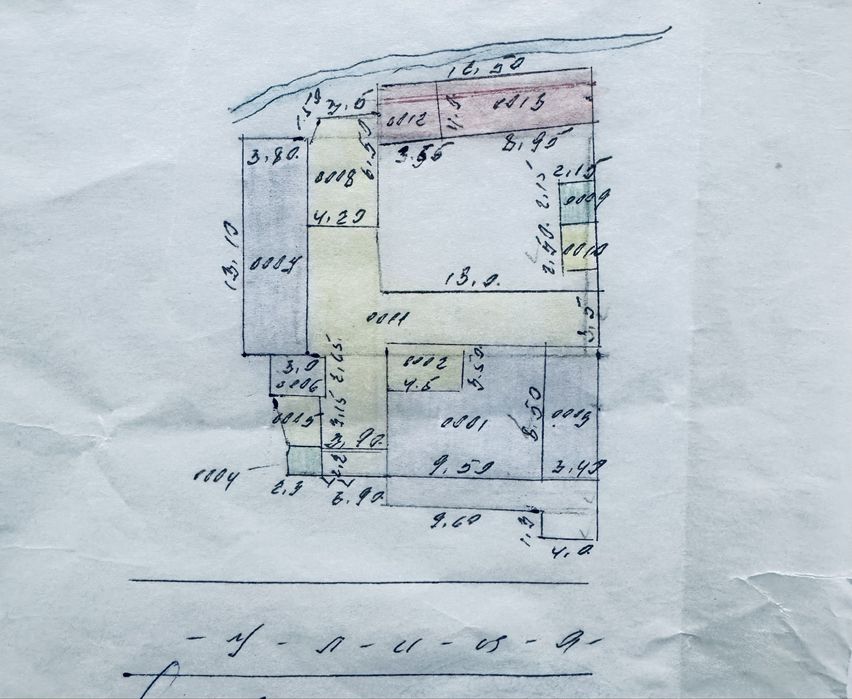 12,50
1,5 4,5
0012 4.5 0013
6,50
3.55 8,95
3,80
0008
4.20
2,15
2,15 0009
2,50 0010
13,10
13,0
0011
3,5
3,0
0006
2,65
0002
4.5
3,50
0015
3,15
0001
8,50
3,90
9,50
3,40
0004
2,2
2,3
3,90
9,60
1,3
4,0
- У - л - и - ц - а -